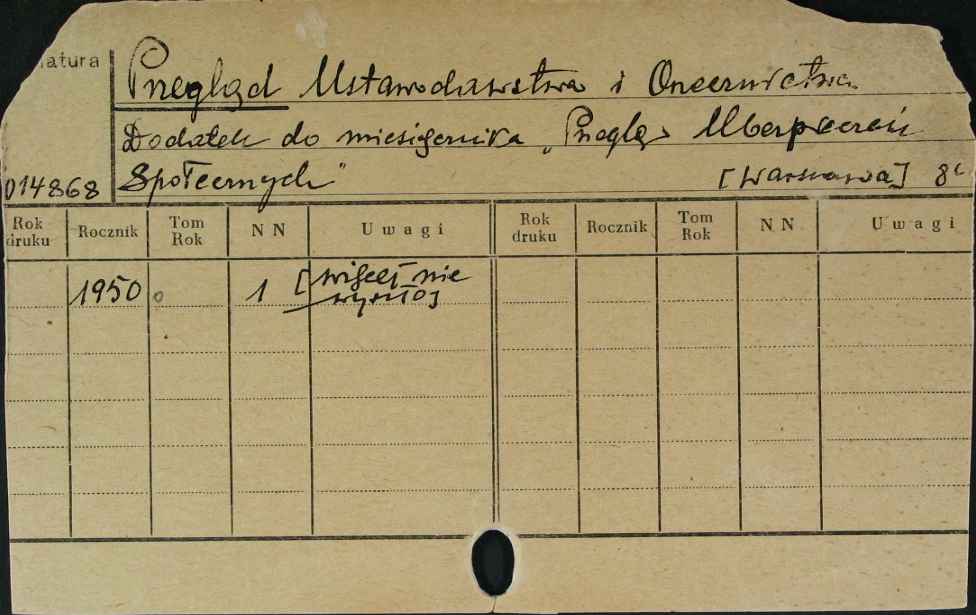 atura
Przegląd Ustawodawstwa i Orzecznictwa
Dodatek do miesięcznika „Przegląd Ubezpieczeń
014868 Społecznych" [Warszawa] 8°
Rok druku Rocznik Tom Rok N N Uwagi Rok druku Rocznik Tom Rok N N Uwagi
1950 1 [więcej nie
wyszło]